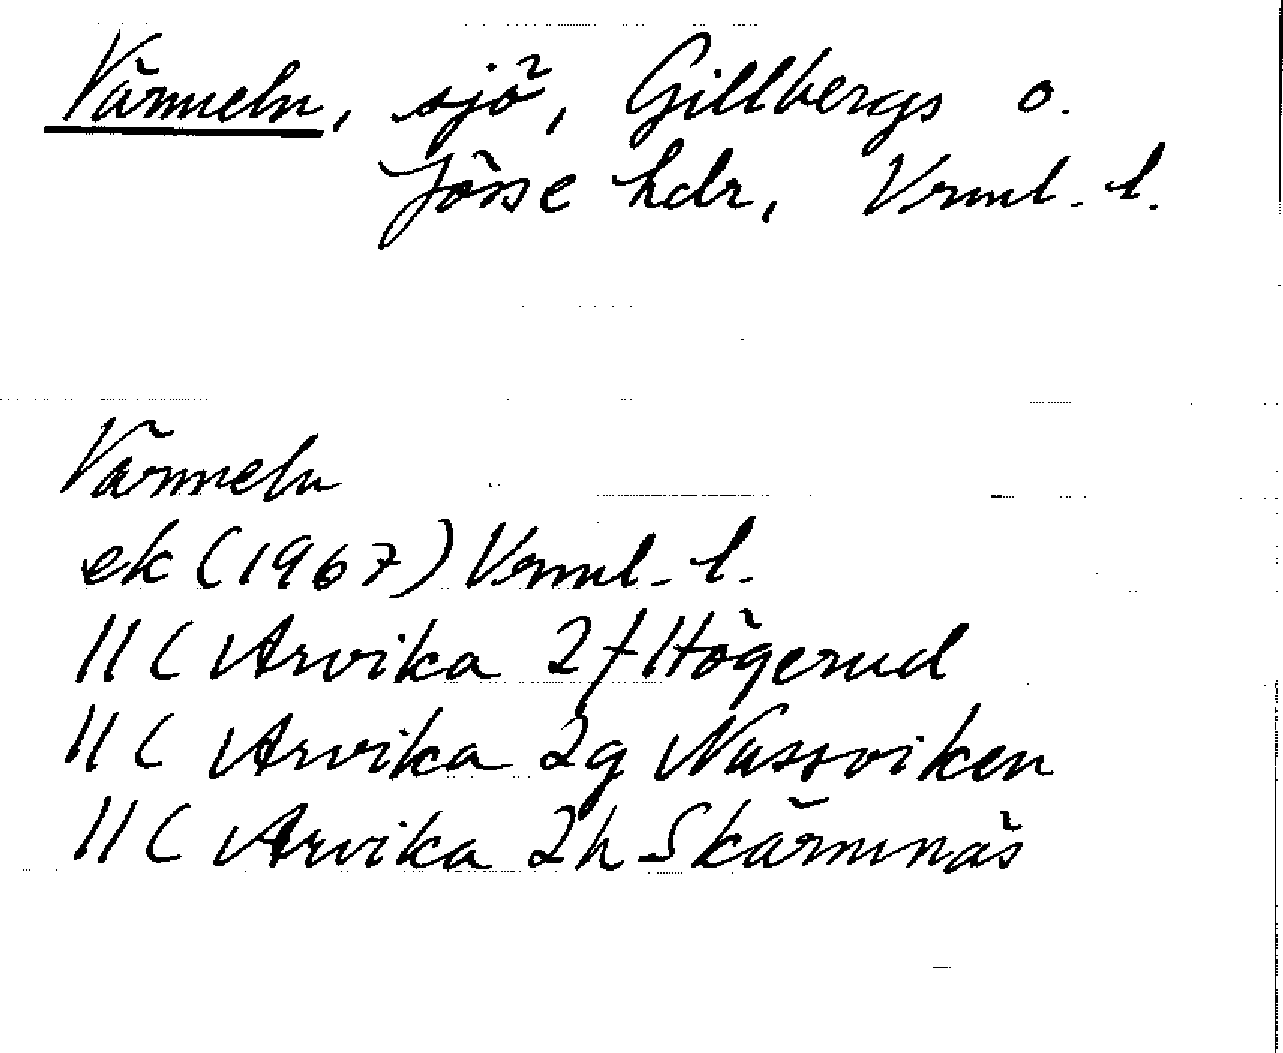 Värmeln, sjö, Gillbergs o.
Jösse hdr, Vrml. l.
Värmeln
ek (1967) Vrml. l.
11 C Arvika 2 f Högerud
11 C Arvika 2g Nussviken
11 C Arvika 2h Skärmnäs